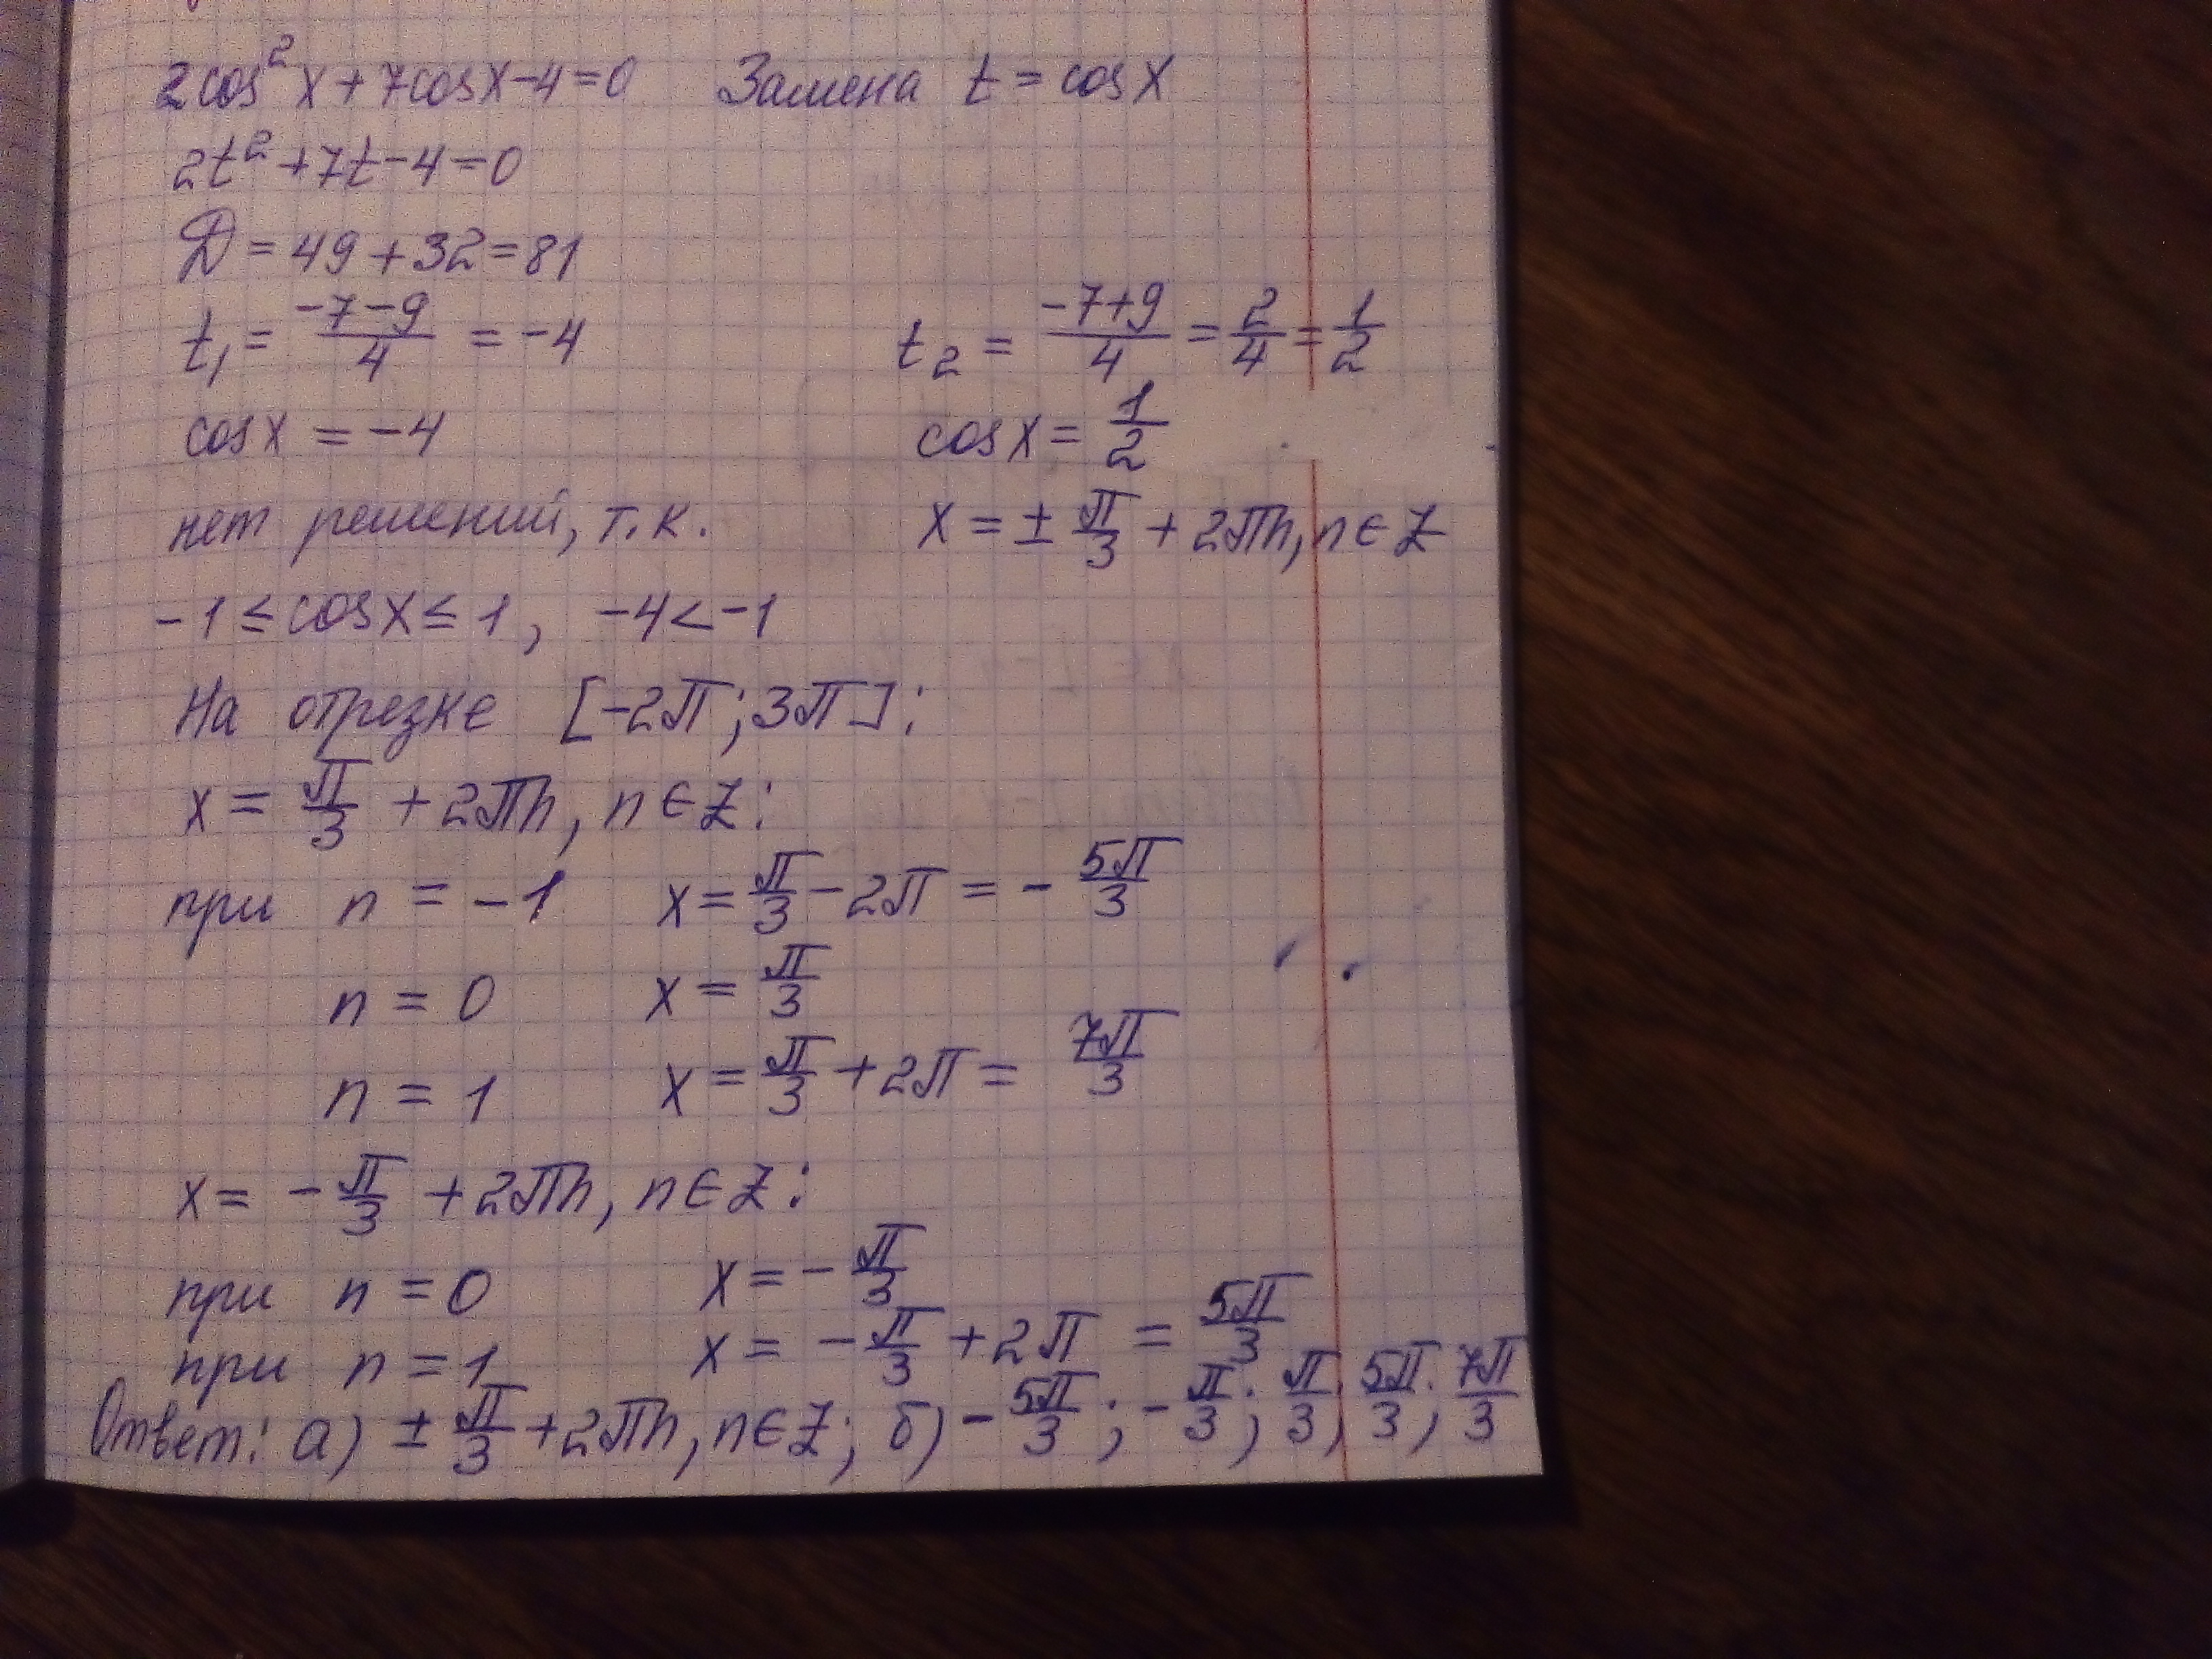 2cos²x+7cosx-4=0 Замена t=cosx
2t²+7t-4=0
D=49+32=81
t₁=(-7-9)/4=-4 t₂=(-7+9)/4=2/4=1/2
cosx=-4 cosx=1/2
нет решений, т.к. x=±π/3+2πn, n∈Z
-1≤cosx≤1, -4<-1
На отрезке [-2π; 3π]:
x=π/3+2πn, n∈Z:
при n=-1 x=π/3-2π=-5π/3
n=0 x=π/3
n=1 x=π/3+2π=7π/3
x=-π/3+2πn, n∈Z:
при n=0 x=-π/3
при n=1 x=-π/3+2π=5π/3
Ответ: а) ±π/3+2πn, n∈Z; б) -5π/3; -π/3; π/3; 5π/3; 7π/3